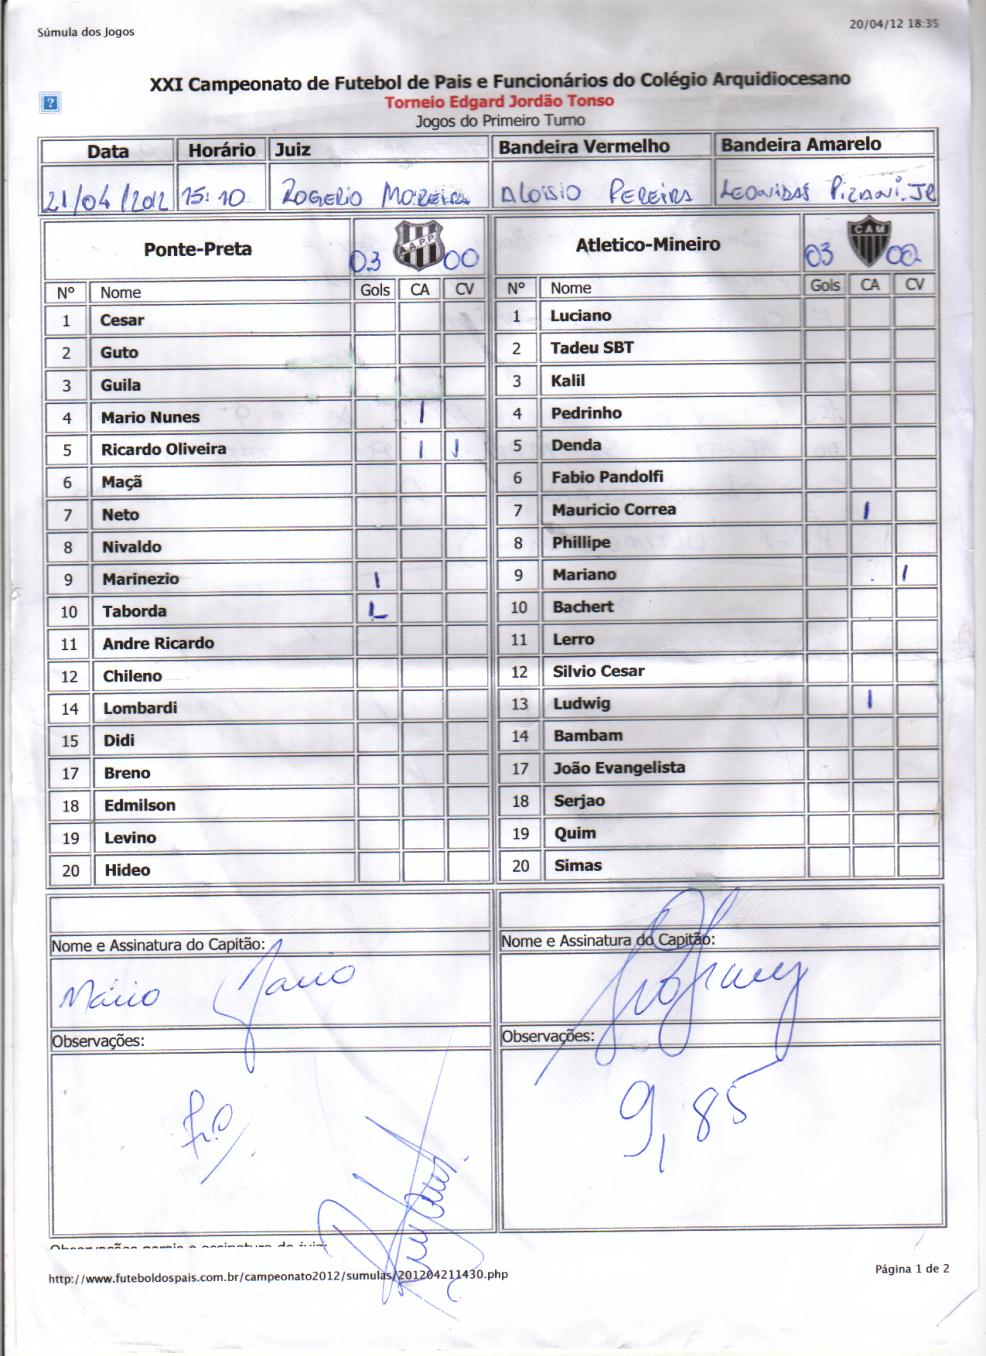 Súmula dos Jogos 20/04/12 18:35
XXI Campeonato de Futebol de Pais e Funcionários do Colégio Arquidiocesano
Torneio Edgard Jordão Tonso
Jogos do Primeiro Turno
Data Horário Juiz Bandeira Vermelho Bandeira Amarelo
21/04/2012 15:10 ROGERIO MOREIRA ALOISIO PEREIRA LEONIDAS PIZANI JR
Ponte-Preta 03 A.A.P.P. 00 Atletico-Mineiro 03 CAM 00
Nº Nome Gols CA CV Nº Nome Gols CA CV
1 Cesar 1 Luciano
2 Guto 2 Tadeu SBT
3 Guila 3 Kalil
4 Mario Nunes I 4 Pedrinho
5 Ricardo Oliveira I I 5 Denda
6 Maçã 6 Fabio Pandolfi
7 Neto 7 Mauricio Correa I
8 Nivaldo 8 Phillipe
9 Marinezio I 9 Mariano I
10 Taborda L 10 Bachert
11 Andre Ricardo 11 Lerro
12 Chileno 12 Silvio Cesar
14 Lombardi 13 Ludwig I
15 Didi 14 Bambam
17 Breno 17 João Evangelista
18 Edmilson 18 Serjao
19 Levino 19 Quim
20 Hideo 20 Simas
Nome e Assinatura do Capitão: Nome e Assinatura do Capitão:
Mário Mario
Observações: Observações:
9,85
Observações gerais e assinatura do juiz:
http://www.futeboldospais.com.br/campeonato2012/sumulas/201204211430.php Página 1 de 2